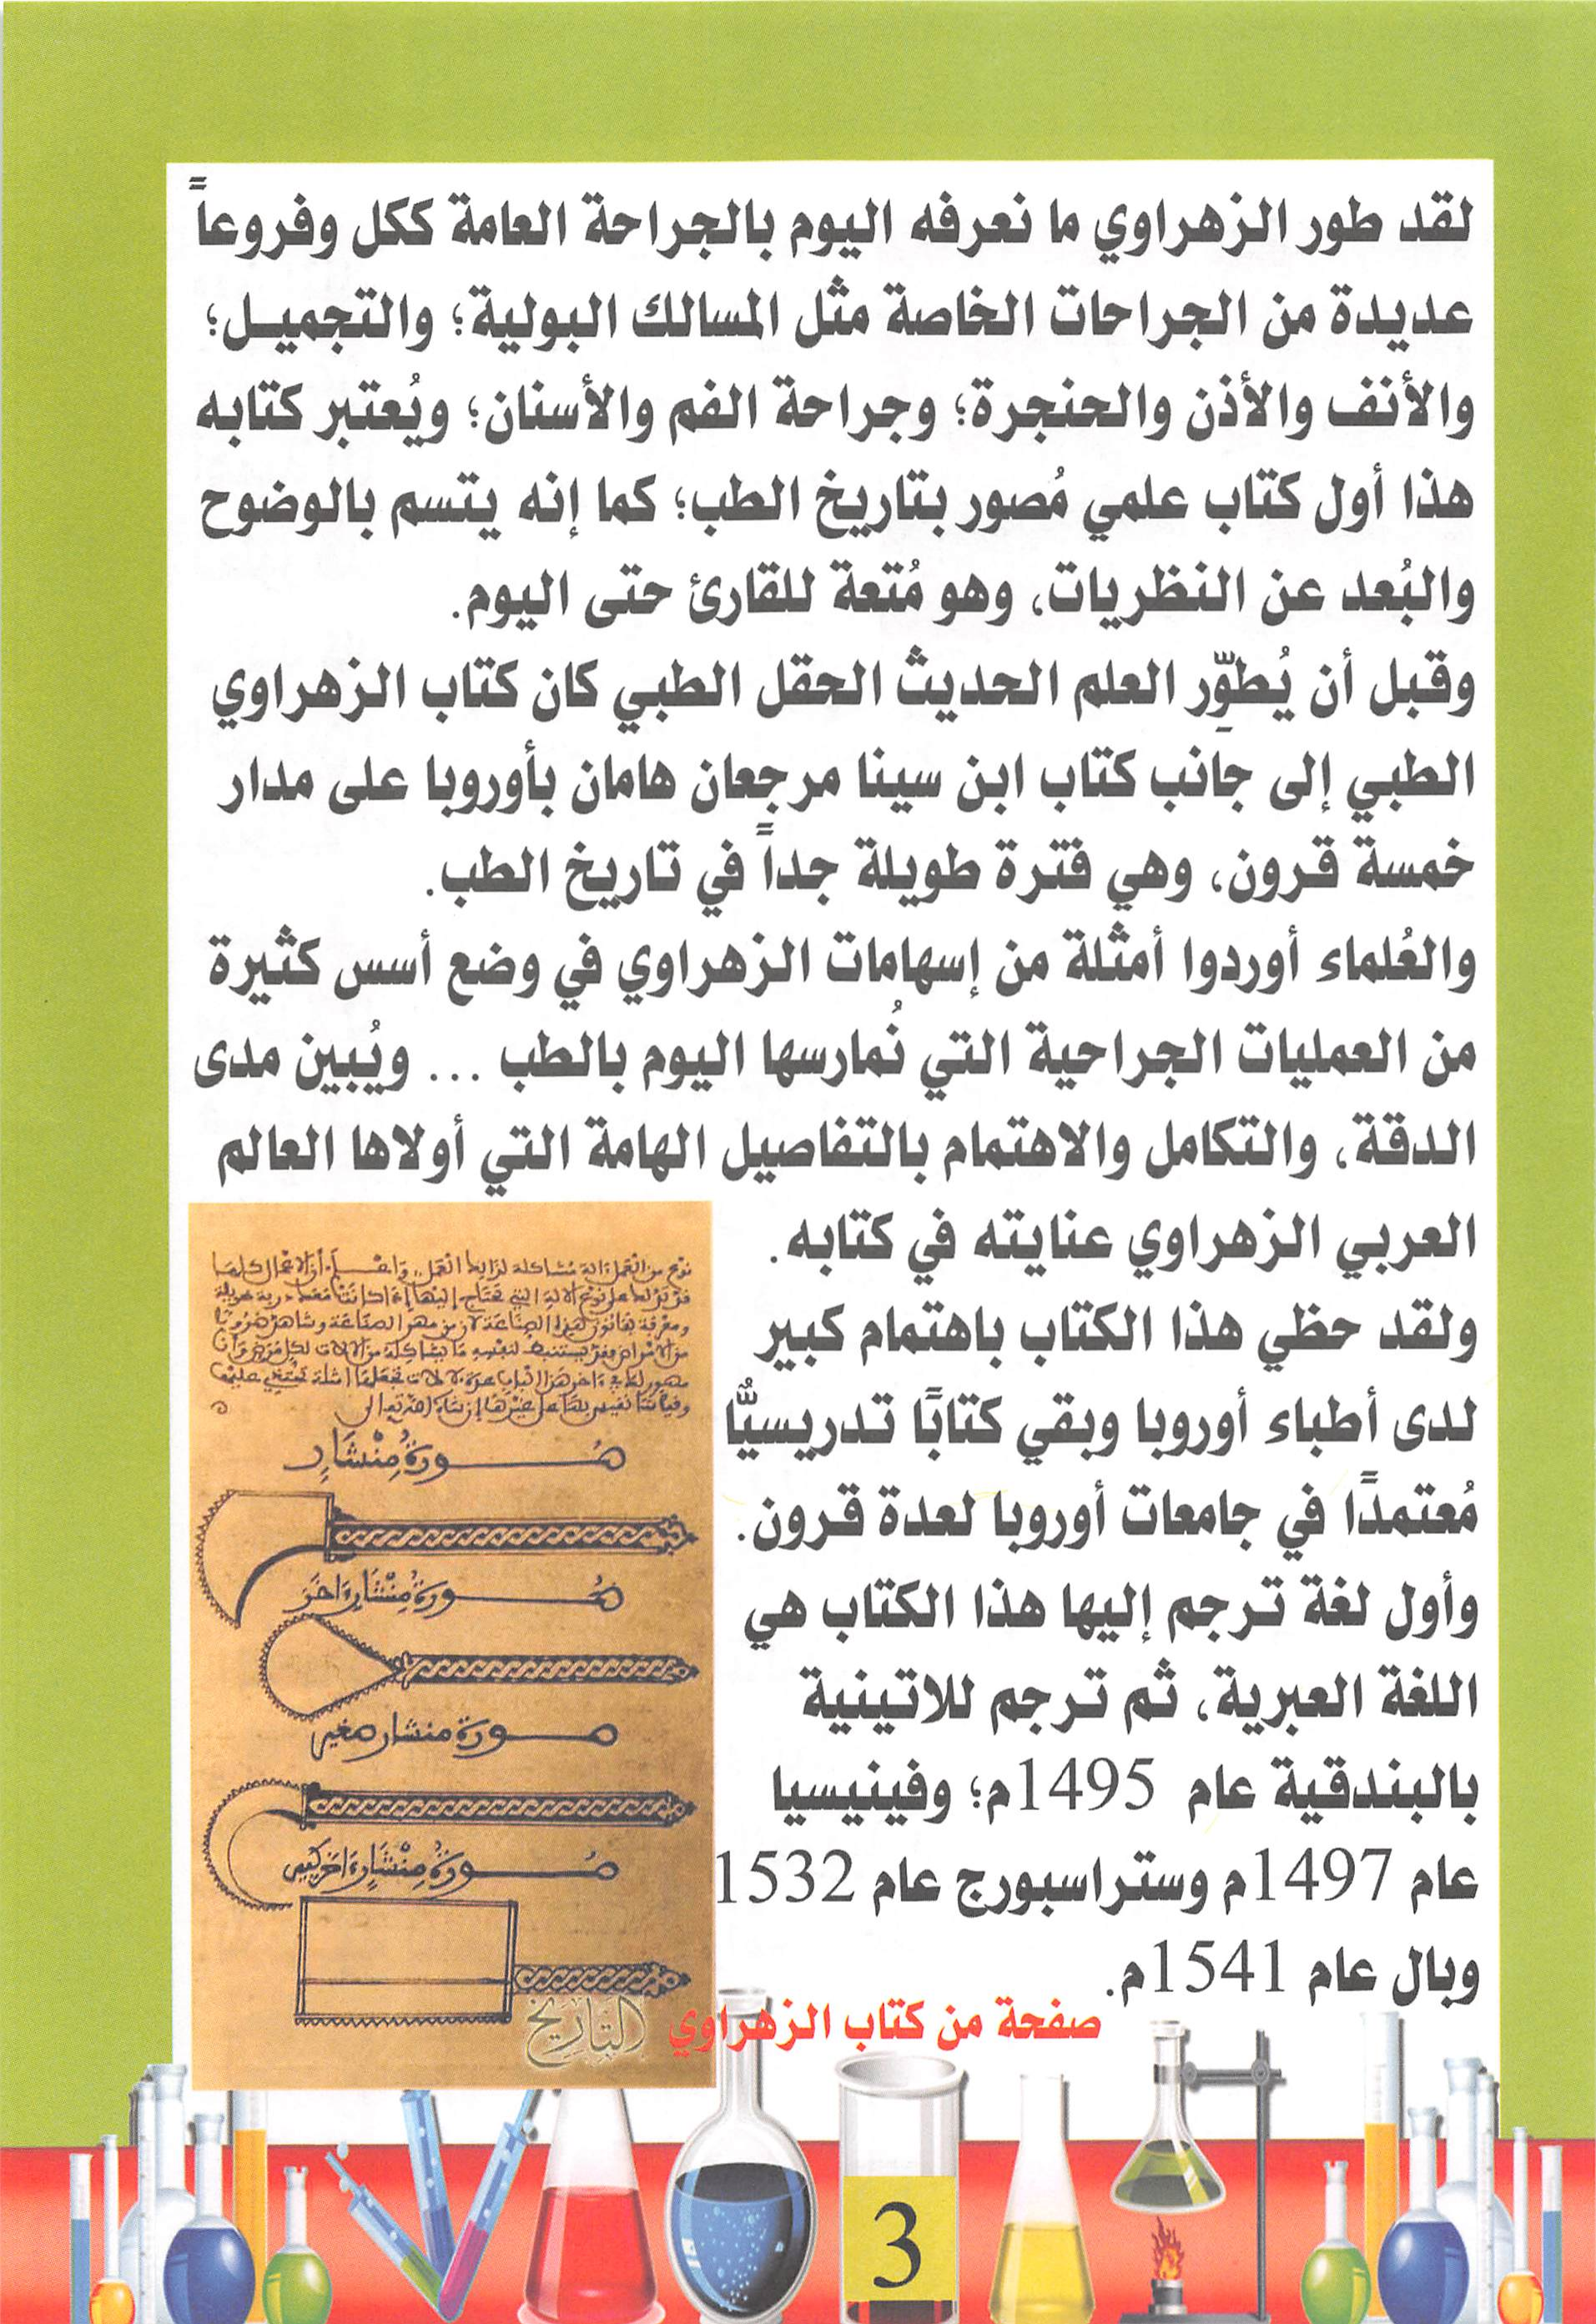 لقد طور الزهراوي ما نعرفه اليوم بالجراحة العامة ككل وفروعاً
عديدة من الجراحات الخاصة مثل المسالك البولية؛ والتجميـل؛
والأنف والأذن والحنجرة؛ وجراحة الفم والأسنان؛ ويُعتبر كتابه
هذا أول كتاب علمي مُصور بتاريخ الطب؛ كما إنه يتسم بالوضوح
والبُعد عن النظريات، وهو مُتعة للقارئ حتى اليوم.
وقبل أن يُطوِّر العلم الحديث الحقل الطبي كان كتاب الزهراوي
الطبي إلى جانب كتاب ابن سينا مرجعان هامان بأوروبا على مدار
خمسة قرون، وهي فترة طويلة جداً في تاريخ الطب.
والعُلماء أوردوا أمثلة من إسهامات الزهراوي في وضع أسس كثيرة
من العمليات الجراحية التي نُمارسها اليوم بالطب ... ويُبين مدى
الدقة، والتكامل والاهتمام بالتفاصيل الهامة التي أولاها العالم
العربي الزهراوي عنايته في كتابه.
ولقد حظي هذا الكتاب باهتمام كبير
لدى أطباء أوروبا وبقي كتابًا تدريسيًّا
مُعتمدًا في جامعات أوروبا لعدة قرون.
وأول لغة ترجم إليها هذا الكتاب هي
اللغة العبرية، ثم ترجم للاتينية
بالبندقية عام 1495م؛ وفينيسيا
عام 1497م وستراسبورج عام 1532
وبال عام 1541م.
صورة منشار
صورة منشار اخر
صورة منشار صغير
صورة منشار اخر كبير
التاريخ
صفحة من كتاب الزهراوي
3